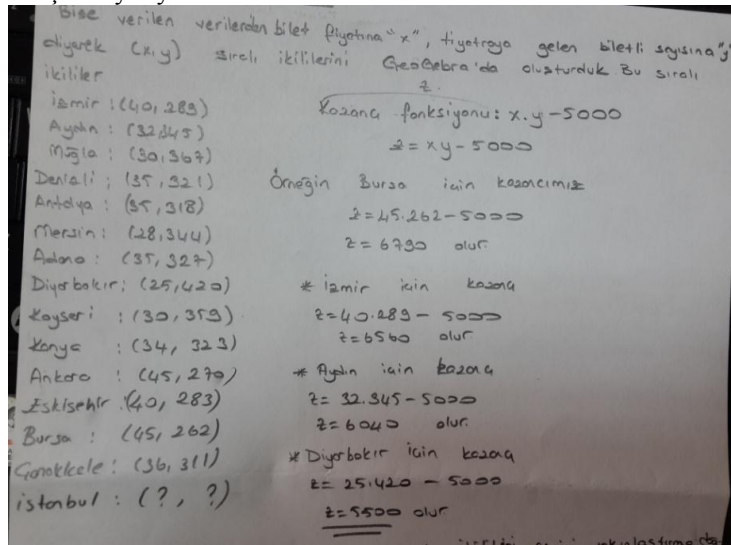 Bize verilen verilerden bilet fiyatına "x", tiyatroya gelen biletli sayısına "y"
diyerek (x,y) sıralı ikililerini GeoGebra'da oluşturduk. Bu sıralı
ikililer
izmir : (40, 289)
Aydın : (32,345)
Muğla : (30,367)
Denizli : (35, 321)
Antalya : (35, 318)
Mersin : (28,344)
Adana : (35, 327)
Diyarbakır : (25,420)
Kayseri : (30,359)
Konya : (34, 323)
Ankara : (45, 270)
Eskişehir : (40, 283)
Bursa : (45, 262)
Çanakkale : (36, 311)
istanbul : (?, ?)
z
Kazanç fonksiyonu : x.y-5000
z = xy - 5000
Örneğin Bursa için kazancımız
z = 45.262 - 5000
z = 6790 olur.
* izmir için kazanç
z = 40.289 - 5000
z = 6560 olur.
* Aydın için kazanç
z = 32.345 - 5000
z = 6040 olur.
* Diyarbakır için kazanç
z = 25.420 - 5000
z = 5500 olur